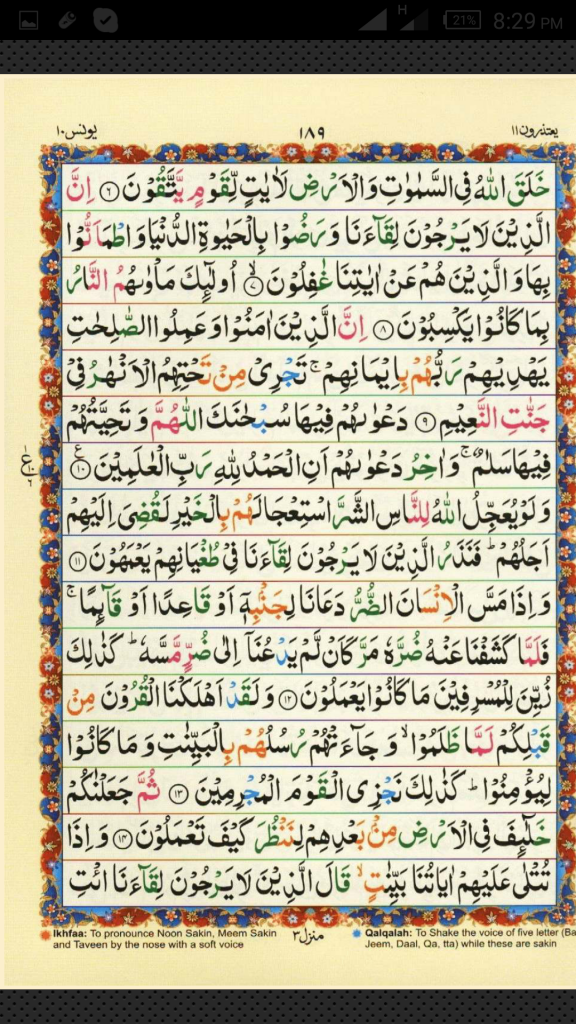 H 21% 8:29 PM
يعتذرون١١ ١٨٩ يونس١٠
خَلَقَ اللّٰهُ فِى السَّمٰوٰتِ وَالْاَرْضِ لَاٰيٰتٍ لِّقَوْمٍ يَّتَّقُوْنَ ﴿٦﴾ اِنَّ
الَّذِيْنَ لَا يَرْجُوْنَ لِقَآءَنَا وَرَضُوْا بِالْحَيٰوةِ الدُّنْيَا وَاطْمَاَنُّوْا
بِهَا وَالَّذِيْنَ هُمْ عَنْ اٰيٰتِنَا غٰفِلُوْنَ ﴿٧﴾ۙ اُولٰٓئِكَ مَاْوٰىهُمُ النَّارُ
بِمَا كَانُوْا يَكْسِبُوْنَ ﴿٨﴾ اِنَّ الَّذِيْنَ اٰمَنُوْا وَعَمِلُوا الصّٰلِحٰتِ
يَهْدِيْهِمْ رَبُّهُمْ بِاِيْمَانِهِمْ ۚ تَجْرِىْ مِنْ تَحْتِهِمُ الْاَنْهٰرُ فِىْ
جَنّٰتِ النَّعِيْمِ ﴿٩﴾ دَعْوٰىهُمْ فِيْهَا سُبْحٰنَكَ اللّٰهُمَّ وَتَحِيَّتُهُمْ
فِيْهَا سَلٰمٌ ۚ وَاٰخِرُ دَعْوٰىهُمْ اَنِ الْحَمْدُ لِلّٰهِ رَبِّ الْعٰلَمِيْنَ ﴿١٠﴾ ع
وَلَوْ يُعَجِّلُ اللّٰهُ لِلنَّاسِ الشَّرَّ اسْتِعْجَالَهُمْ بِالْخَيْرِ لَقُضِىَ اِلَيْهِمْ
اَجَلُهُمْ ؕ فَنَذَرُ الَّذِيْنَ لَا يَرْجُوْنَ لِقَآءَنَا فِىْ طُغْيَانِهِمْ يَعْمَهُوْنَ ﴿١١﴾
وَاِذَا مَسَّ الْاِنْسَانَ الضُّرُّ دَعَانَا لِجَنْۢبِهٖۤ اَوْ قَاعِدًا اَوْ قَآئِمًا ۚ
فَلَمَّا كَشَفْنَا عَنْهُ ضُرَّهٗ مَرَّ كَاَنْ لَّمْ يَدْعُنَاۤ اِلٰى ضُرٍّ مَّسَّهٗ ؕ كَذٰلِكَ
زُيِّنَ لِلْمُسْرِفِيْنَ مَا كَانُوْا يَعْمَلُوْنَ ﴿١٢﴾ وَلَقَدْ اَهْلَكْنَا الْقُرُوْنَ مِنْ
قَبْلِكُمْ لَمَّا ظَلَمُوْا ۙ وَجَآءَتْهُمْ رُسُلُهُمْ بِالْبَيِّنٰتِ وَمَا كَانُوْا
لِيُؤْمِنُوْا ؕ كَذٰلِكَ نَجْزِى الْقَوْمَ الْمُجْرِمِيْنَ ﴿١٣﴾ ثُمَّ جَعَلْنٰكُمْ
خَلٰٓئِفَ فِى الْاَرْضِ مِنْۢ بَعْدِهِمْ لِنَنْظُرَ كَيْفَ تَعْمَلُوْنَ ﴿١٤﴾ وَاِذَا
تُتْلٰى عَلَيْهِمْ اٰيَاتُنَا بَيِّنٰتٍ ۙ قَالَ الَّذِيْنَ لَا يَرْجُوْنَ لِقَآءَنَا ائْتِ
Ikhfaa: To pronounce Noon Sakin, Meem Sakin
and Taveen by the nose with a soft voice
منزل٣
Qalqalah: To Shake the voice of five letter (Ba
Jeem, Daal, Qa, tta) while these are sakin